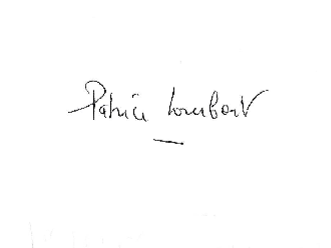 Patrice Lombart